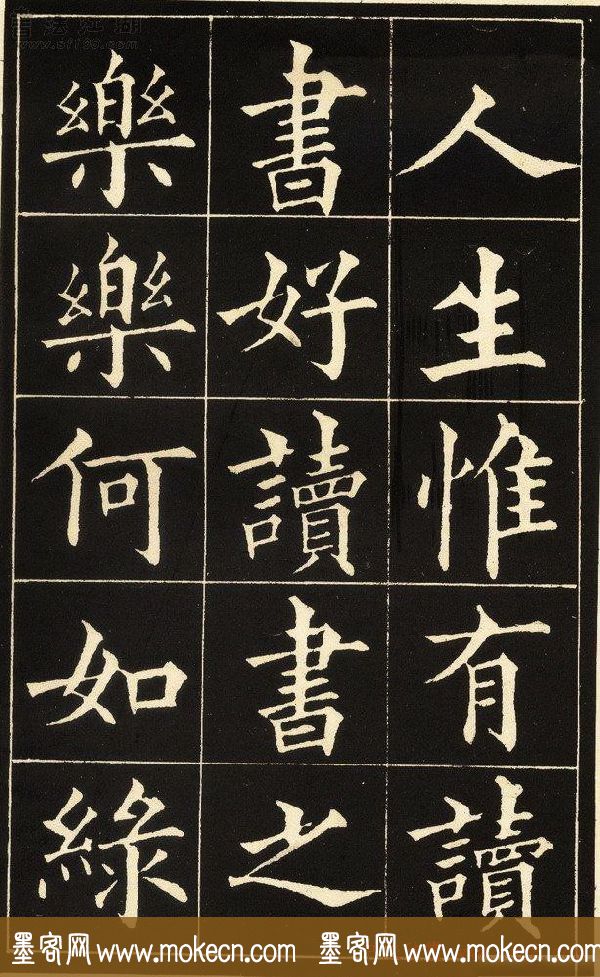 人生惟有讀
書好讀書之
樂樂何如綠
書法江湖
墨客网 www.mokecn.com 墨客网 www.mokecn.com